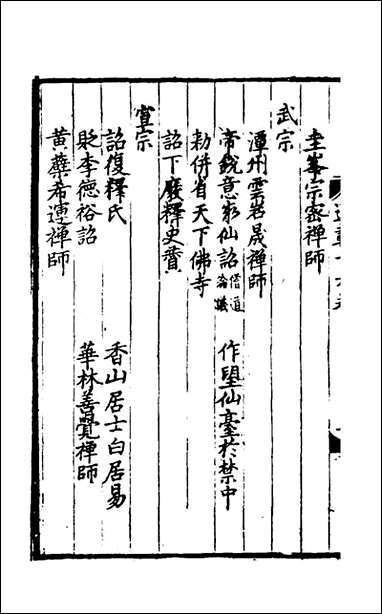 圭峯宗密禪師
武宗
潭州雲岩晟禪師
帝銳意求仙詔僧道論議　作望仙臺於禁中
勑併省天下佛寺
詔下廢釋史贊
宣宗
詔復釋氏　香山居士白居易
貶李德裕詔　華林善覺禪師
黄蘗希運禪師